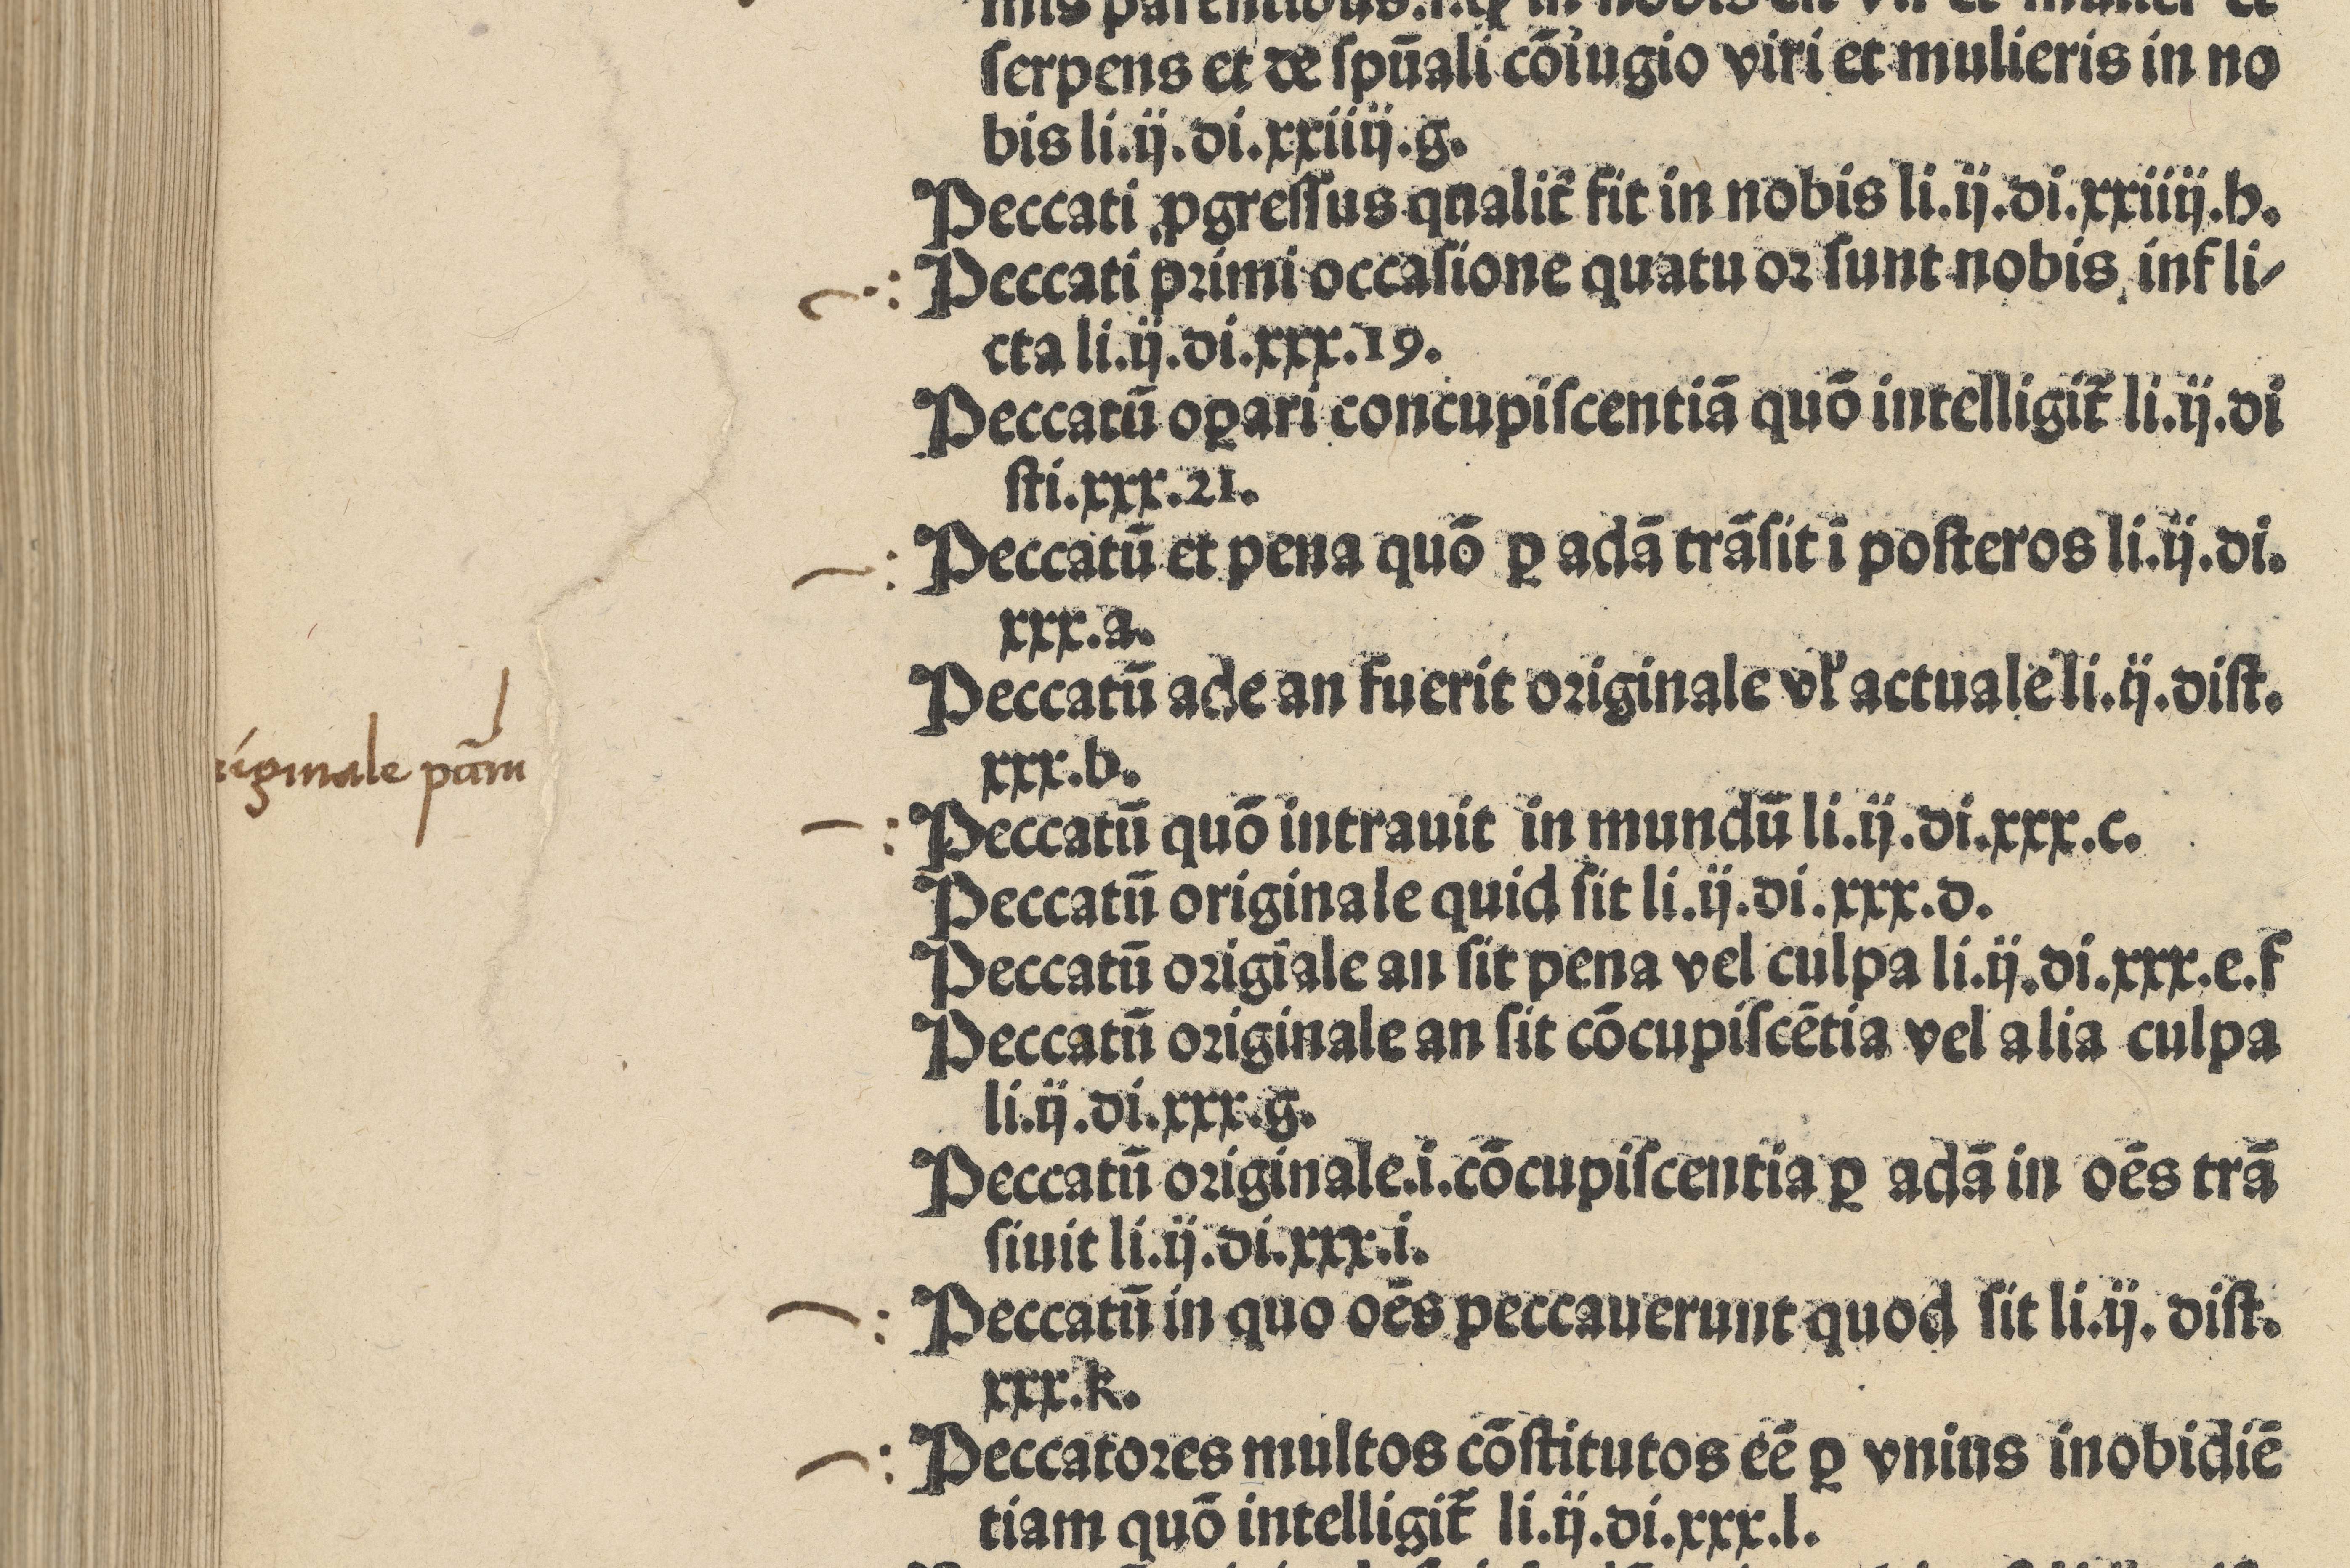 serpens et de spūali cōiugio viri et mulieris in no
bis li.ij.di.xxiiij.g.
Peccati ꝓgressus qualit̄ fit in nobis li.ij.di.xxiiij.h.
Peccati primi occasione quatuor sunt nobis infli⸗
cta li.ij.di.xxx.19.
Peccatū oꝑari concupiscentiā quō intelligit̄ li.ij.di
sti.xxx.21.
Peccatū et pena quō ꝑ adā trāsit ī posteros li.ij.di.
xxx.a.
Peccatū ade an fuerit originale vl' actuale li.ij.dist.
xxx.b.
riginale
Peccatū quō intrauit in mundū li.ij.di.xxx.c.
Peccatū originale quid sit li.ij.di.xxx.d.
Peccatū origīale an sit pena vel culpa li.ij.di.xxx.e.f
Peccatū originale an sit cōcupiscētia vel alia culpa
li.ij.di.xxx.g.
Peccatū originale.i.cōcupiscentia ꝑ adā in oēs trā
siuit li.ij.di.xxx.i.
Peccatū in quo oēs peccauerunt quod sit li.ij. dist.
xxx.k.
Peccatores multos cōstitutos eē ꝑ vnius inobidiē
tiam quō intelligit̄ li.ij.di.xxx.l.